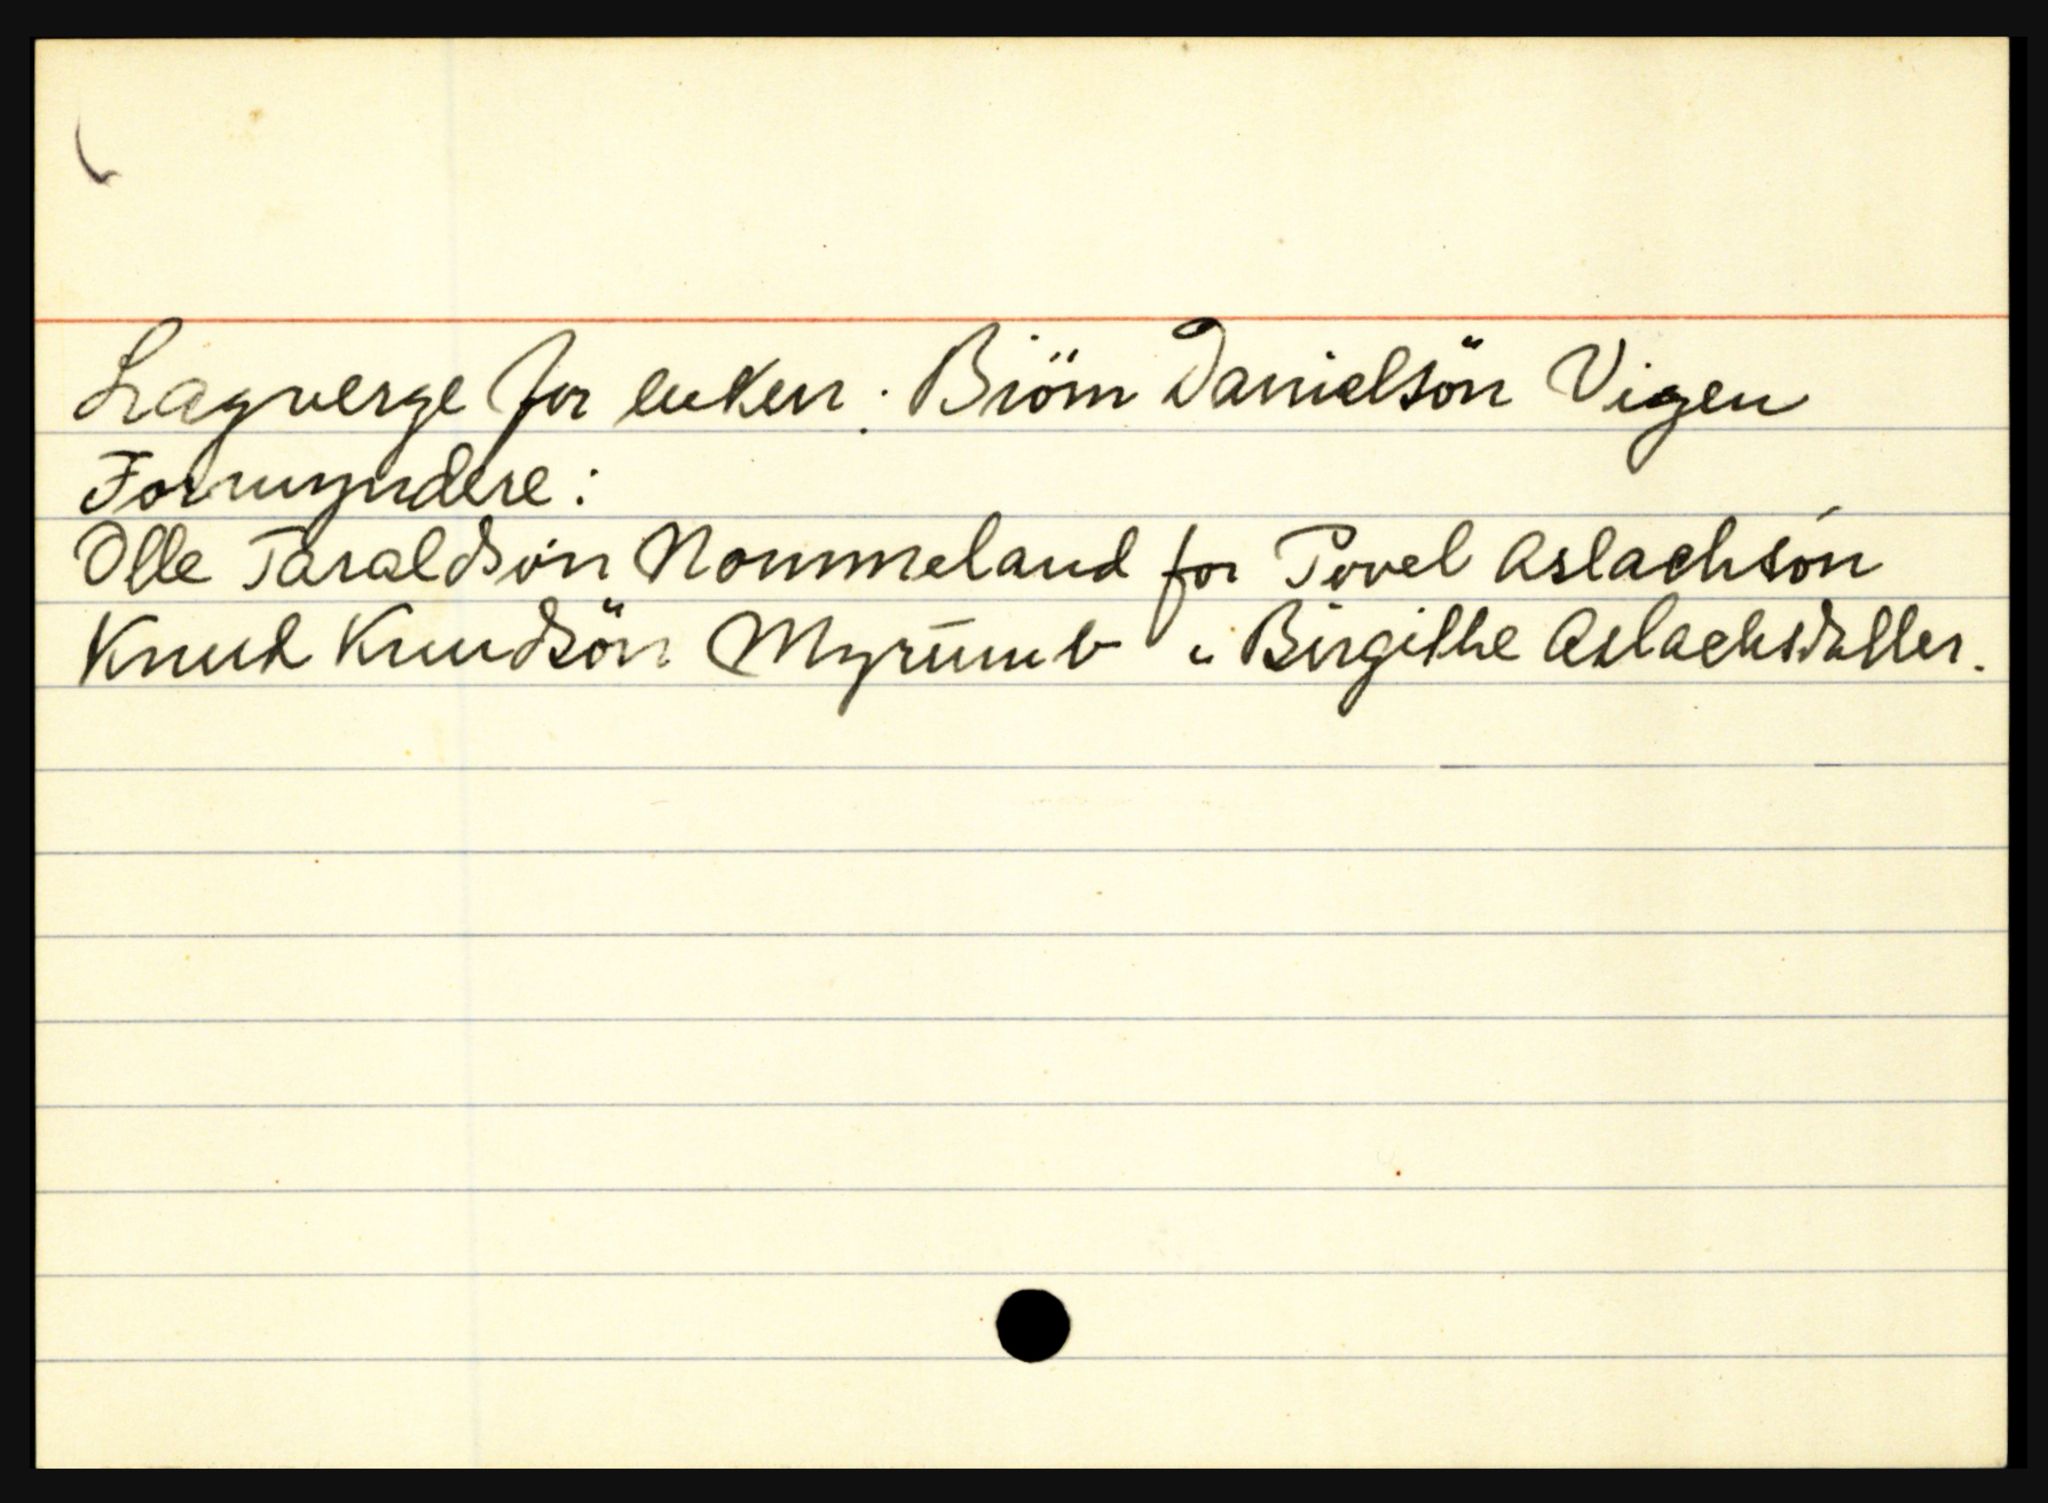 Lagverge for enken: Biörn Danielsön Vigen
Formyndere:
Olle Taraldsön Nommeland for Povel Aslachsön
Knud Knudsön Myrum " Birgithe Aslachsdatter.